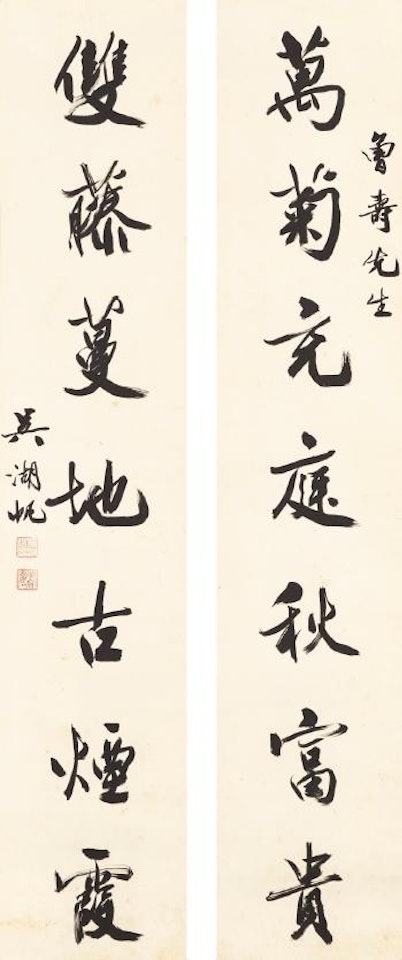 魯壽先生
萬菊充庭秋富貴
雙藤蔓地古煙霞
吳湖帆